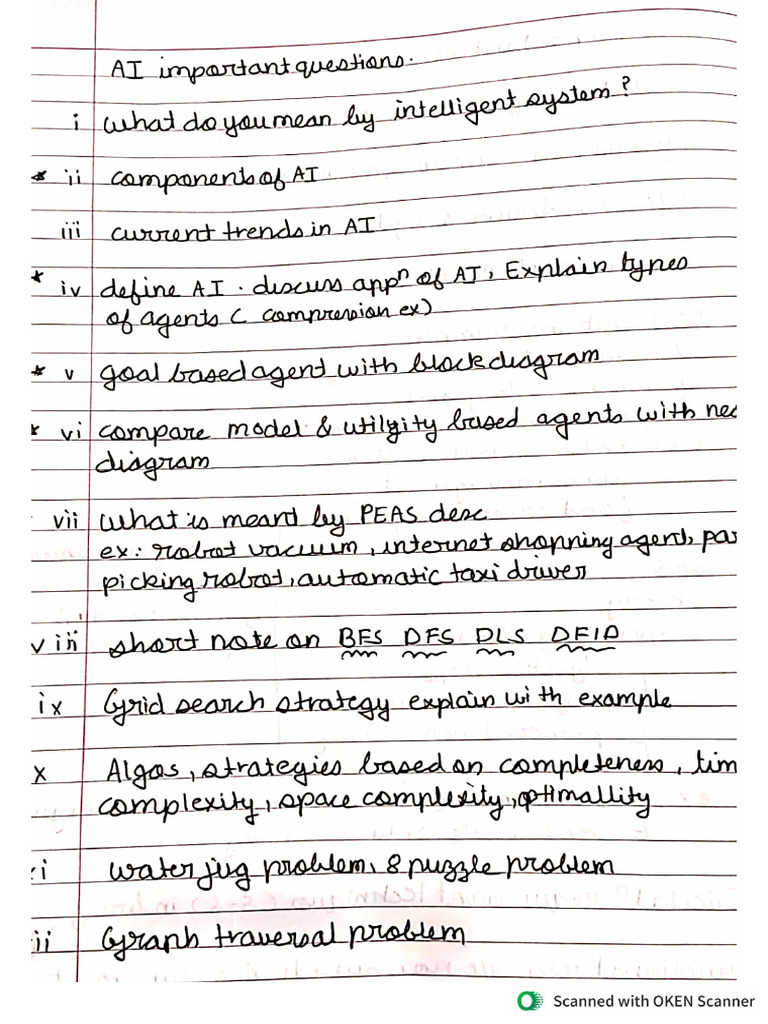 AI important questions.
i what do you mean by intelligent system?
* ii components of AI
iii current trends in AI
* iv define AI. discuss appⁿ of AI, Explain types
of agents ( compression ex)
* v goal based agent with block diagram
* vi compare model & utility based agents with nec
diagram
vii what is meant by PEAS desc
ex: robot vacuum, internet shopping agent, par
picking robot, automatic taxi driver
viii short note on BFS DFS DLS DFID
ix Grid search strategy explain with example
x Algos, strategies based on completeness, tim
complexity, space complexity, optimallity
i water jug problem, 8 puzzle problem
ii Graph traversal problem
Scanned with OKEN Scanner